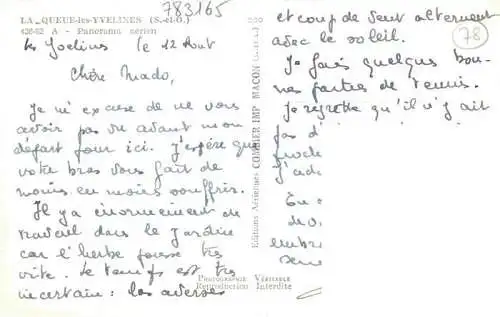 783165
LA QUEUE-les-YVELINES (S.-et-O.)
426-62 A - Panorama aérien
Les Joëlins le 12 Août
Chère Mado,
Je m'excuse de ne vous
avoir pas vu avant mon
départ pour ici. J'espère que
votre bras vous fait de
moins en moins souffrir.
Il y a énormément de
travail dans le jardin
car l'herbe pousse très
vite. Le temps est très
incertain : les averses
Editions Aériennes COMBIER IMP. MACON
PHOTOGRAPHIE VÉRITABLE
Reproduction Interdite
et coup de vent alternent
avec le soleil.
78
Je fais quelques bon-
nes parties de tennis.
Je regrette qu'il n'y ait
pas d'
J'ado
embra